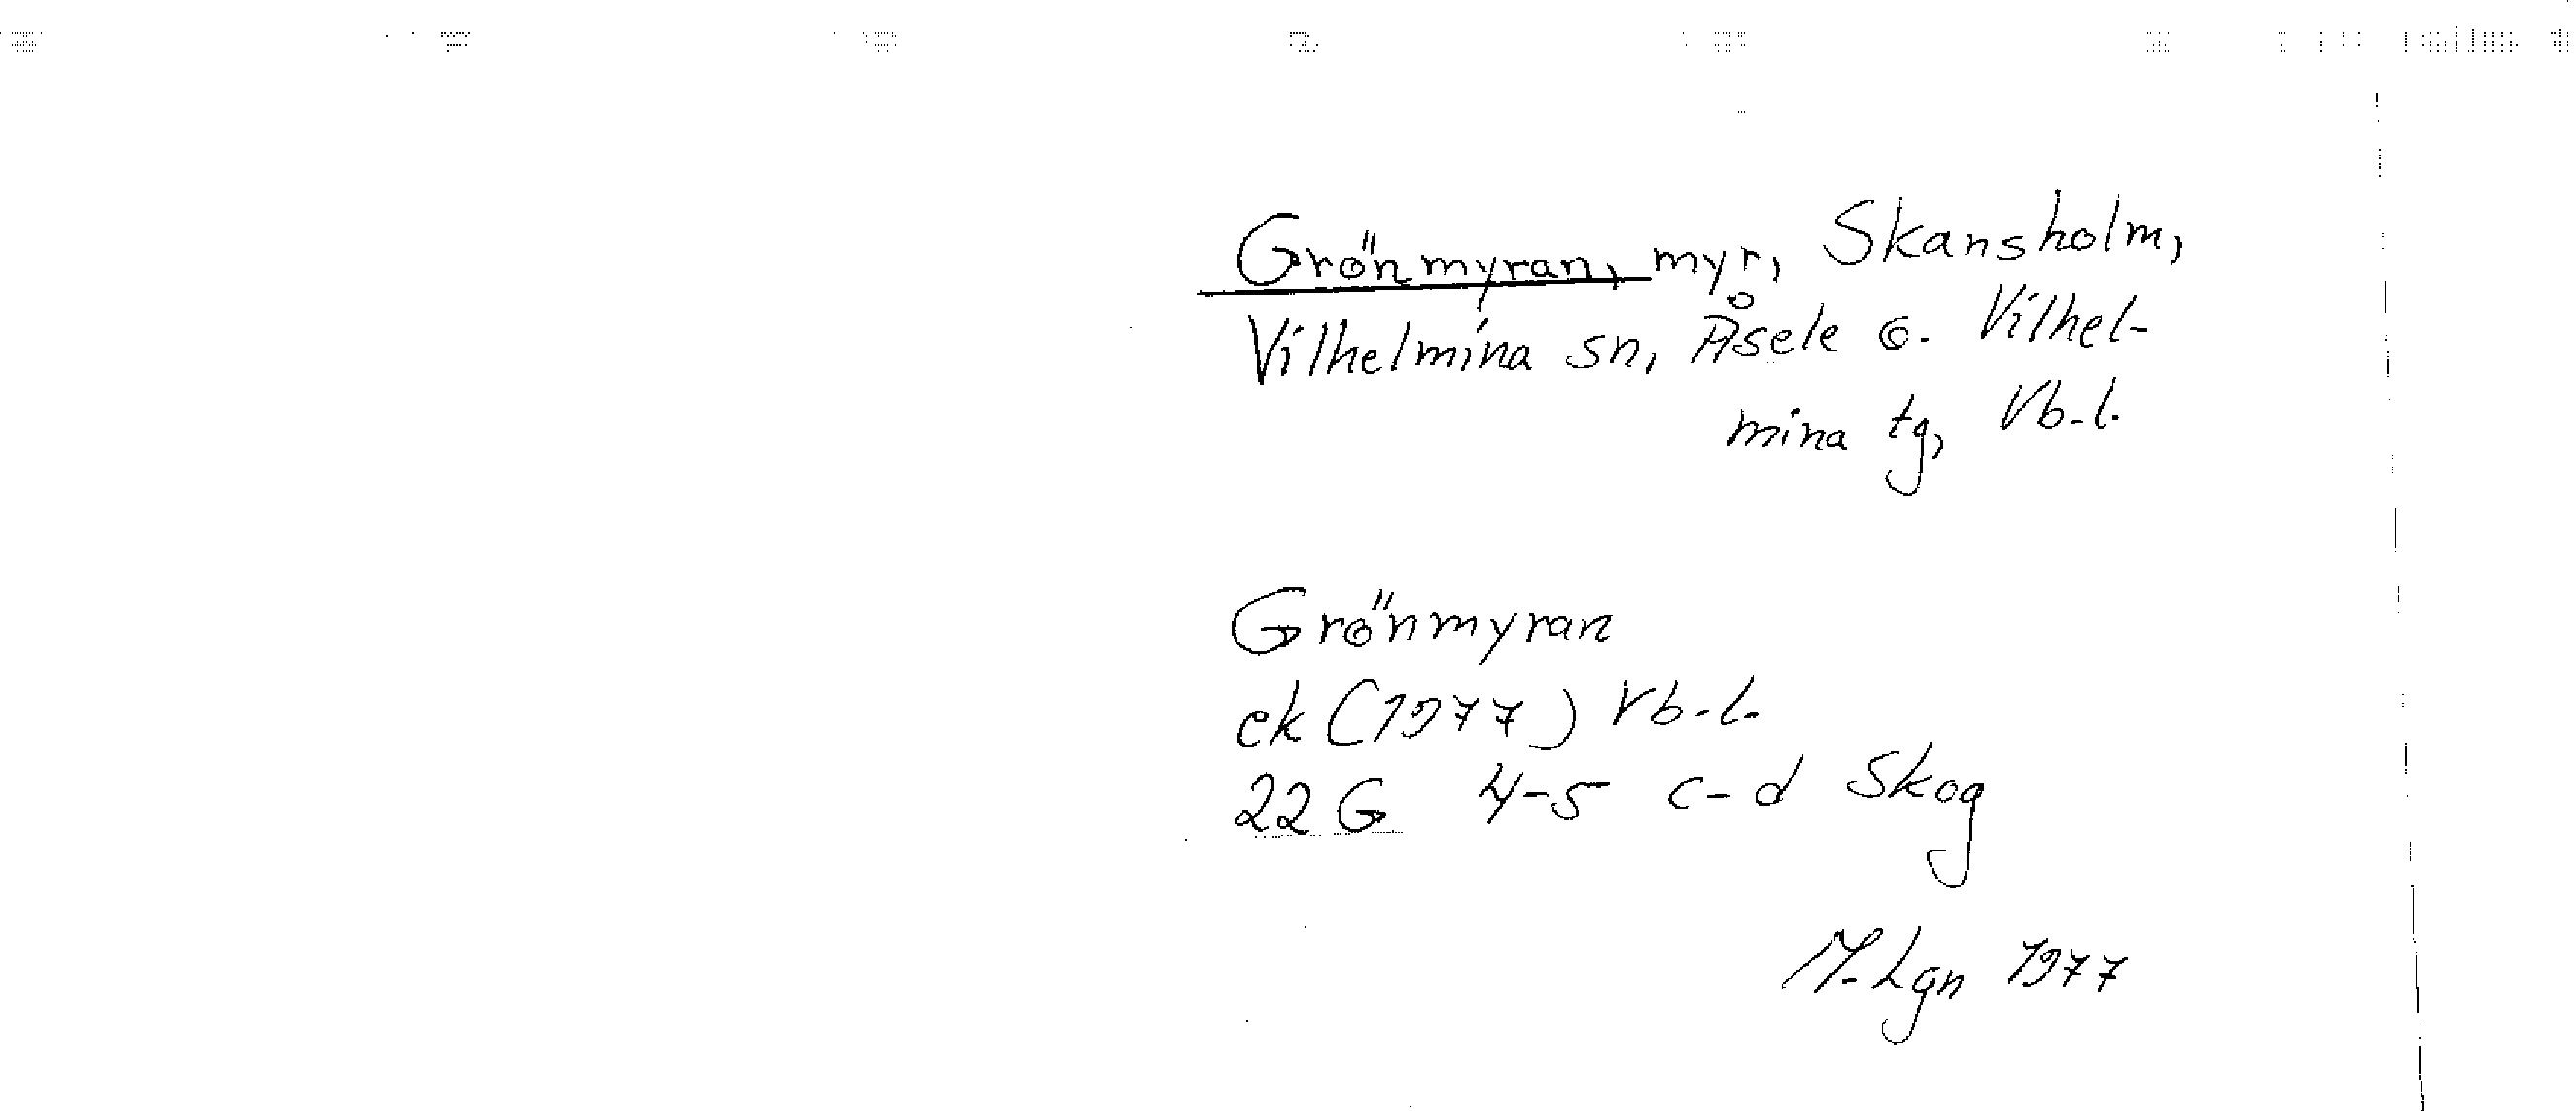 Grönmyran, myr, Skansholm,
Vilhelmina sn, Åsele o. Vilhel-
mina tg, Vb.l.
Grönmyran
ek (1977) Vb.l.
22 G 4-5 c-d Skog
M. Lgn 1977